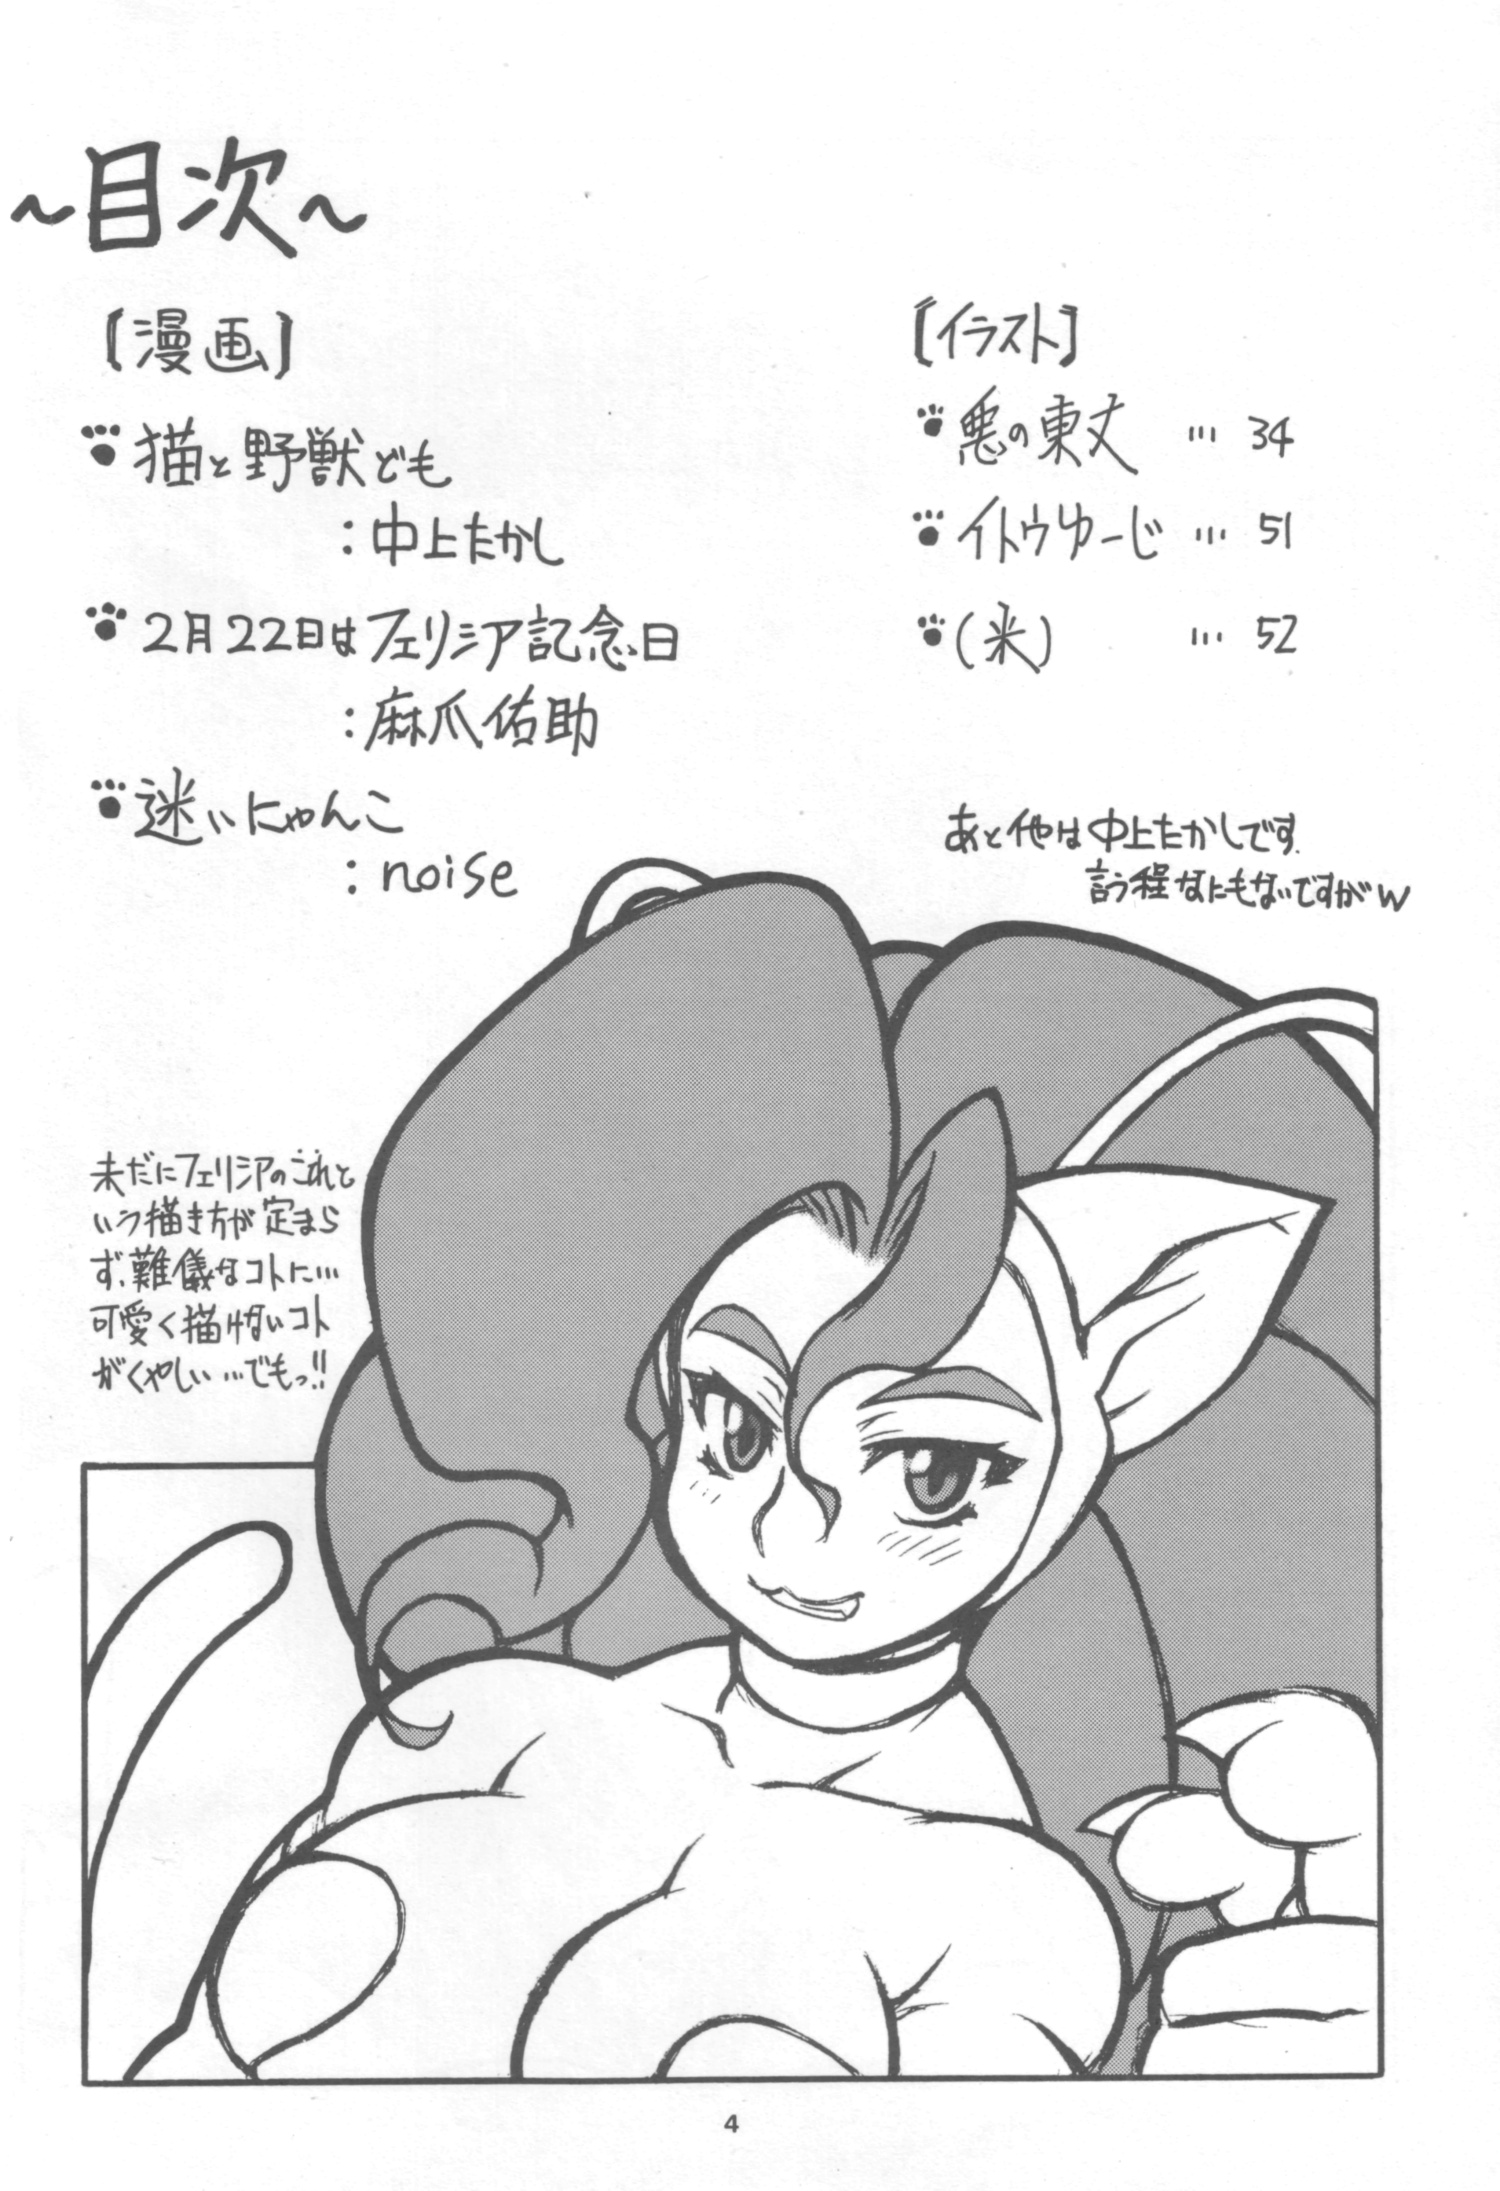 ～目次～
【漫画】
猫と野獣ども
：中上たかし
2月22日はフェリシア記念日
：麻爪佑助
迷いにゃんこ
：noise
【イラスト】
悪の東丈 … 34
イトウゆーじ … 51
(米) … 52
あと他は中上たかしです.
言う程なにもないですがw
未だにフェリシアのこれと
いう描き方が定まら
ず、難儀なコトに…
可愛く描けないコト
がくやしい…でもっ!!
4